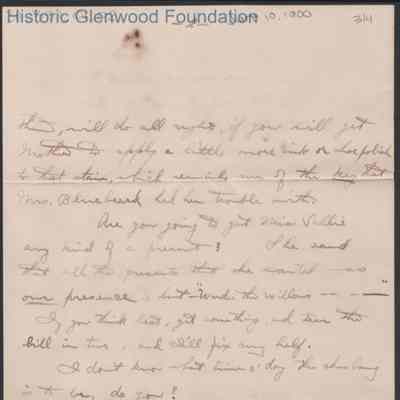 Historic Glenwood Foundation
10, 1900
3/4
will do all right, if you will get
Mother to apply a little more ink or shoe polish
to that stain, which reminds me of the key that
Mrs. Bluebeard had her trouble with.
Are you going to get Miss Sallie
any kind of a present? She said
that all the presents that she wanted was
our presence, but "Words the willows -- -- —"
If you think best, get something and tear the
bill in two, and I'll pay my half.
I don't know what time o' day the shebang
is to be, do you?